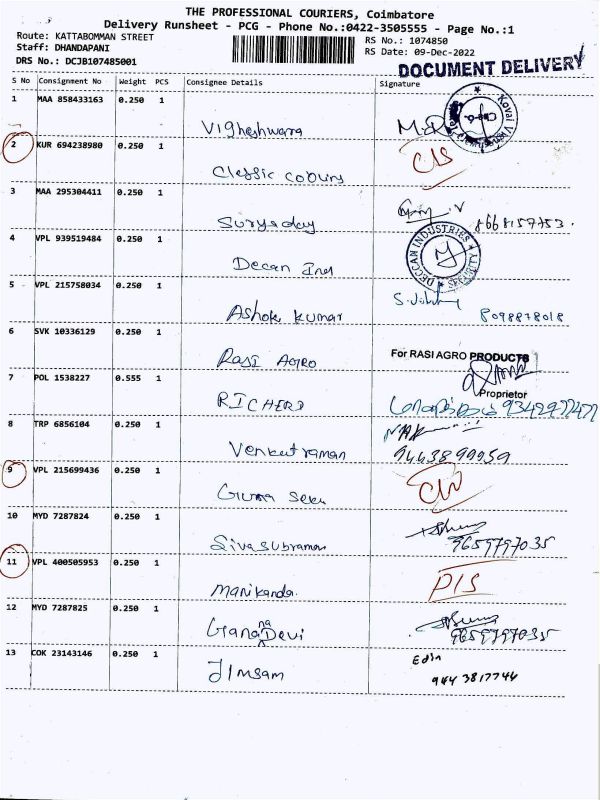 THE PROFESSIONAL COURIERS, Coimbatore
Delivery Runsheet - PCG - Phone No.:0422-3505555 - Page No.:1
Route: KATTABOMMAN STREET RS No.: 1074850
Staff: DHANDAPANI RS Date: 09-Dec-2022
DRS No.: DCJB107485001 DOCUMENT DELIVERY
S No Consignment No Weight PCS Consignee Details Signature
1 MAA 858433163 0.250 1
Vigheshwara
2 KUR 694238980 0.250 1
Classic colours
3 MAA 295304411 0.250 1
Suryaday 8668157753.
4 VPL 939519484 0.250 1
Decan Ind DECCAN INDUSTRIES SECURITY
5 VPL 215758034 0.250 1
Ashok kumar 8098878018
6 SVK 10336129 0.250 1
RASI AGRO For RASI AGRO PRODUCTS
7 POL 1538227 0.555 1 Proprietor
RICHERD
8 TRP 6856104 0.250 1
Venkatraman 9443899959
9 VPL 215699436 0.250 1
Guna Seka
10 MYD 7287824 0.250 1
Sivasubraman 9659797035
11 VPL 400505953 0.250 1
Manikanda. DIS
12 MYD 7287825 0.250 1
Gnana Devi 9659797035
13 COK 23143146 0.250 1 Edin
Jimsam 944 3817744